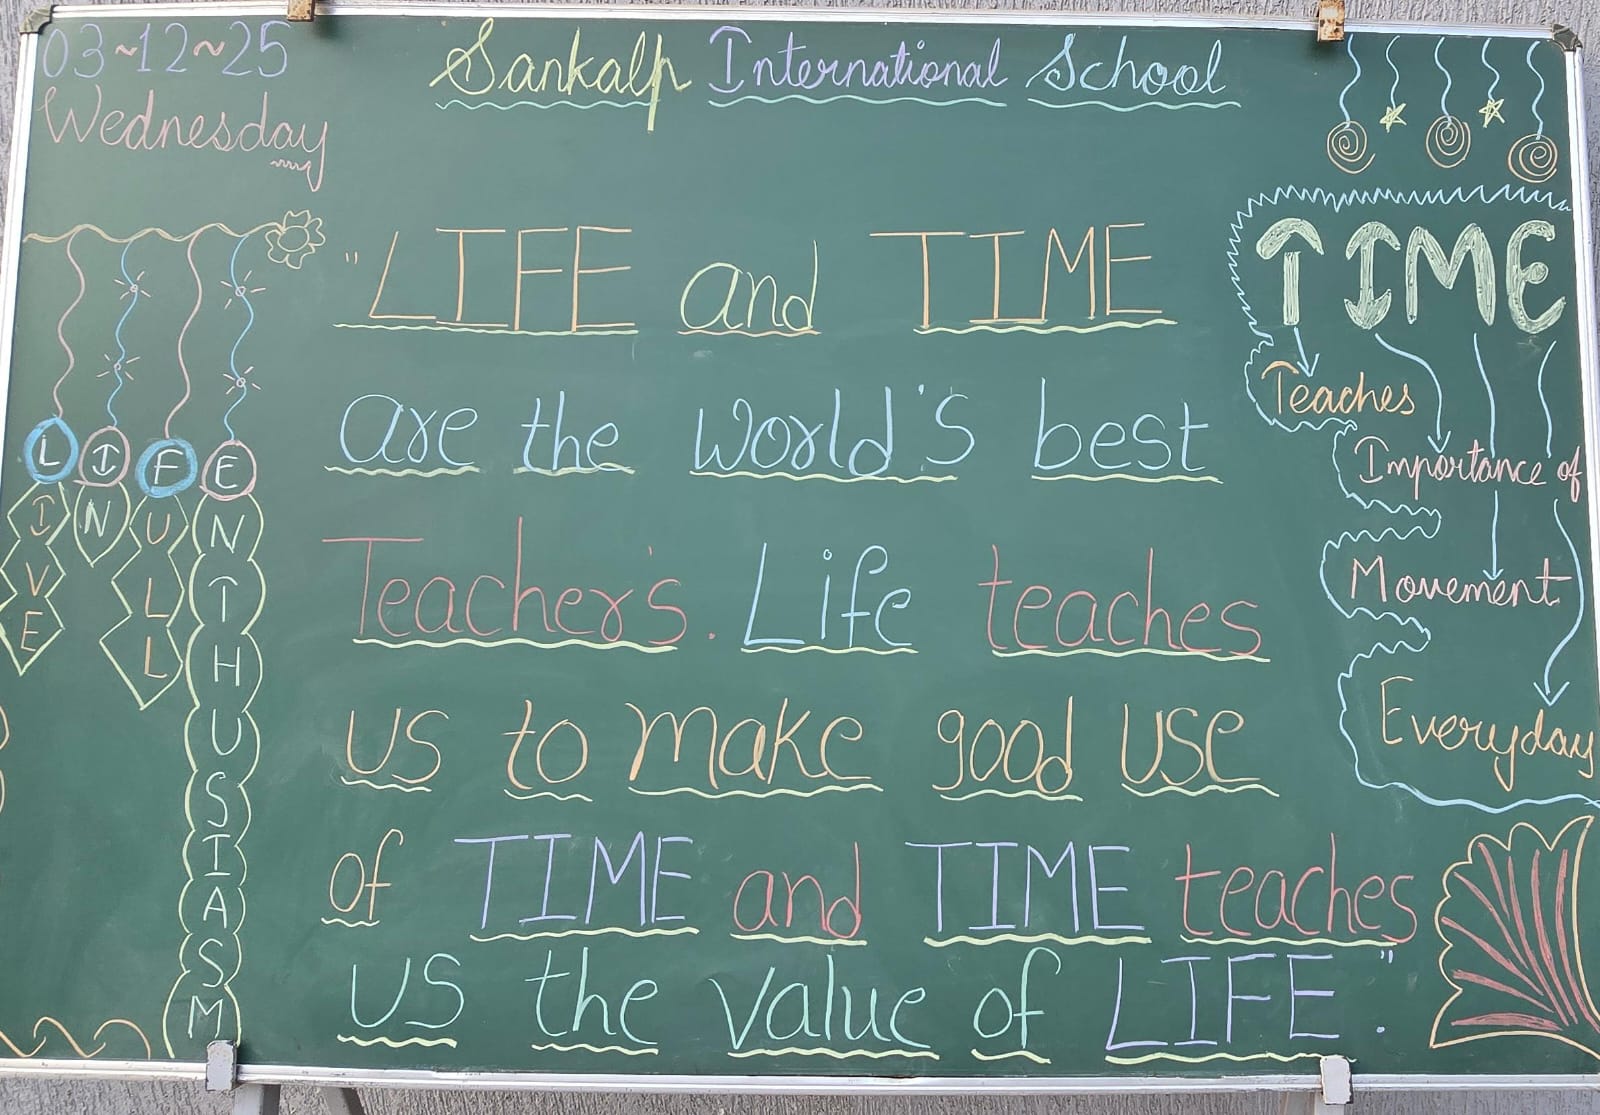 03~12~25
Wednesday
Sankalp International School
"LIFE and TIME
are the world's best
Teacher's. Life teaches
us to make good use
of TIME and TIME teaches
us the value of LIFE."
LIVE
IN
FULL
ENTHUSIASM
TIME
Teaches
Importance of
Movement
Everyday